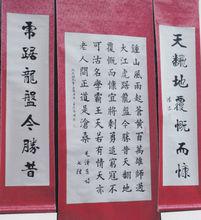 天翻地覆慨而慷
鍾山風雨起蒼黃百萬雄師過
大江虎踞龍盤今勝昔天翻地
覆慨而慷宜將剩勇追窮寇不
可沽名學霸王天若有情天亦
老人間正道是滄桑 毛澤東詩
七律
虎踞龍盤今勝昔